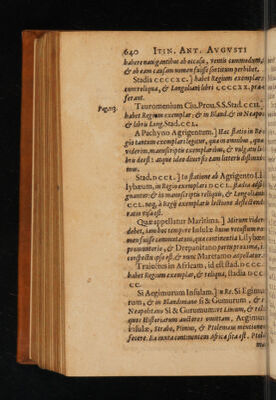 640 ITIN. ANT. AVGVSTI
habere nauigantibus ab occasu, ventis commodum,
& ob eam causam nomen fuisse sortitum perhibet.
Stadia CCCCXC.] habet Regium exemplar:
cum reliqua, & Longoliani libri CCCCXX. præ-
ferant.
Tauromenium Cio. Prou. S.S. Stad. CCII.]
habet Regium exemplar: & in Bland. & in Neapo.
& libris Long. Stad. CCL.
A Pachyno Agrigentum.] Hæc statio in Re-
gio tantum exemplari legitur, quæ in omnibus, quæ
viderim manuscriptis exemplaribus, & vulgatis li-
bris deest: atque ideo diuersis eam litteris distinxi-
mus.
Stad. DCCCL.] In statione ab Agrigento Li-
lybæum, in Regio exemplari DCCL. stadia adsi-
gnantur: & in manuscriptis reliquis, & Longolianis
CCL. neq; à Regij exemplaris lectione deflectendi
ratio visa est.
Quæ appellatur Maritima.] Mirum videri
debet, iam hoc tempore Insulæ huius vetustum no-
men fuisse commutatum, quæ continentia Lilybæo
promuntorio, & Drepanitano portu proxima, in
conspectu ipso est, & nunc Maretamo appellatur.
Traiectus in Africam, id est stad. DCCC.]
habet Regium exemplar, & reliqua, stadia DCC
CC.
Si Aegimurum Insulam.] In Re. Si Egimu
rum, & in Blandiniano Si & Gumurum, & in
Neapolitano Si & Gurumum
Insulæ, Strabo, Plinius, & Ptolemæus mentionem
fecere. Ea iuxta continentem Africæ sita est. Ptole